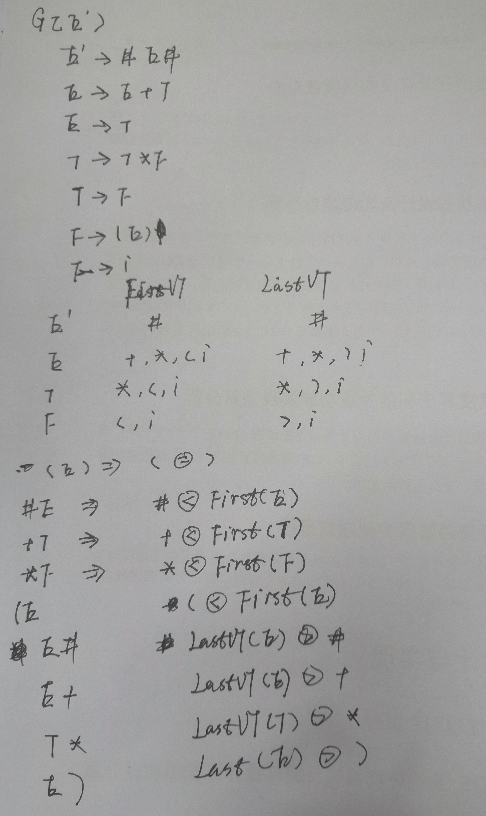 G[E')
E' → #E#
E → E + T
E → T
T → T * F
T → F
F → (E)
F → i
FirstVT LastVT
E' # #
E +, *, ( i +, *, ) i
T *, (, i *, ), i
F (, i ), i
(E) ⇒ ( ⊜ )
#E ⇒ # ⧀ First(E)
+T ⇒ + ⧀ First(T)
*F ⇒ * ⧀ First(F)
(E ( ⧀ First(E)
E# LastVT(E) ⧁ #
E+ LastVT(E) ⧁ +
T* LastVT(T) ⧁ *
E) Last(E) ⧁ )